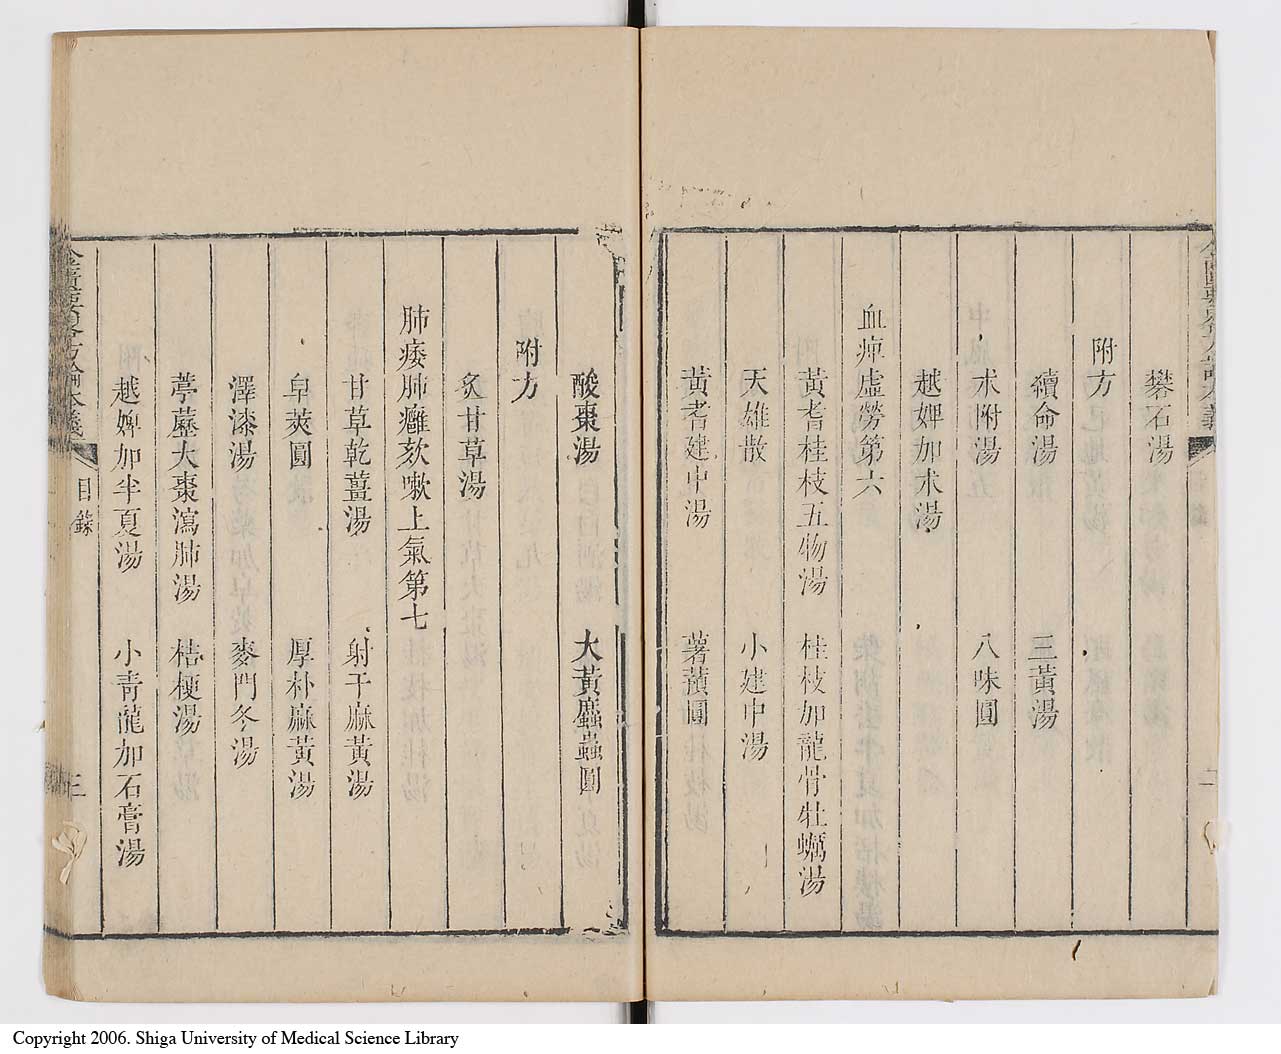 礬石湯
附方
續命湯　三黃湯
朮附湯　八味圓
越婢加朮湯
血痺虛勞第六
黃耆桂枝五物湯　桂枝加龍骨牡蠣湯
天雄散　小建中湯
黃耆建中湯　薯蕷圓
酸棗湯　大黃䗪蟲圓
附方
炙甘草湯
肺痿肺癰欬嗽上氣第七
甘草乾薑湯　射干麻黃湯
皁莢圓　厚朴麻黃湯
澤漆湯　麥門冬湯
葶藶大棗瀉肺湯　桔梗湯
越婢加半夏湯　小青龍加石膏湯
金匱要略方論本義　目錄　三
Copyright 2006. Shiga University of Medical Science Library